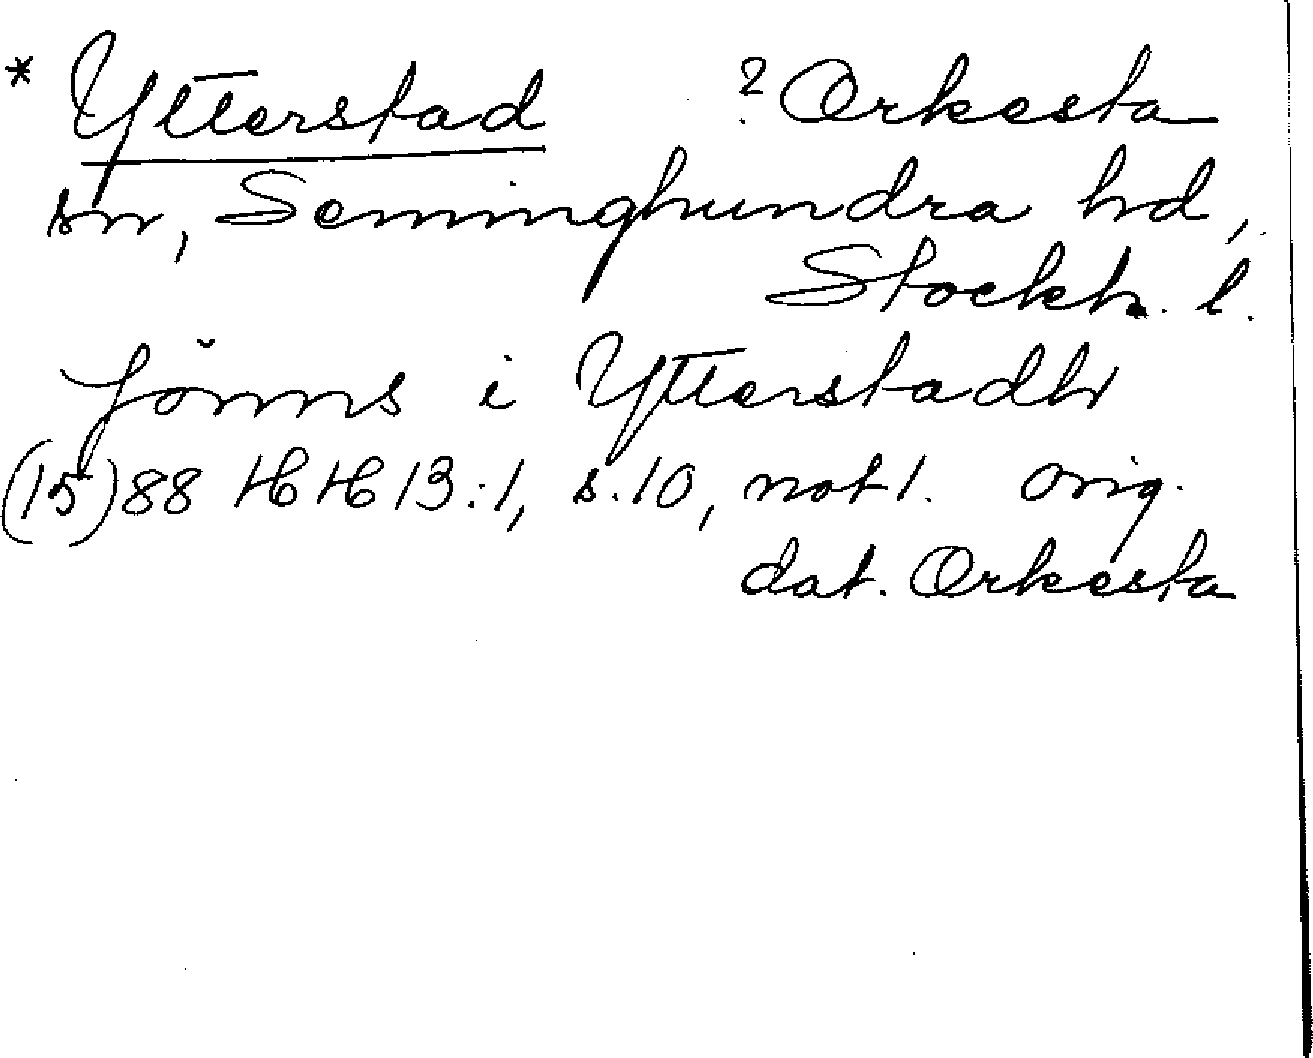 * Ytterstad ? Orkesta
sn, Seminghundra hd,
Stockh. l.
Jönns i Ytterstadh
(15)88 HH 13:1, s. 10, not 1. Orig.
dat. Orkesta